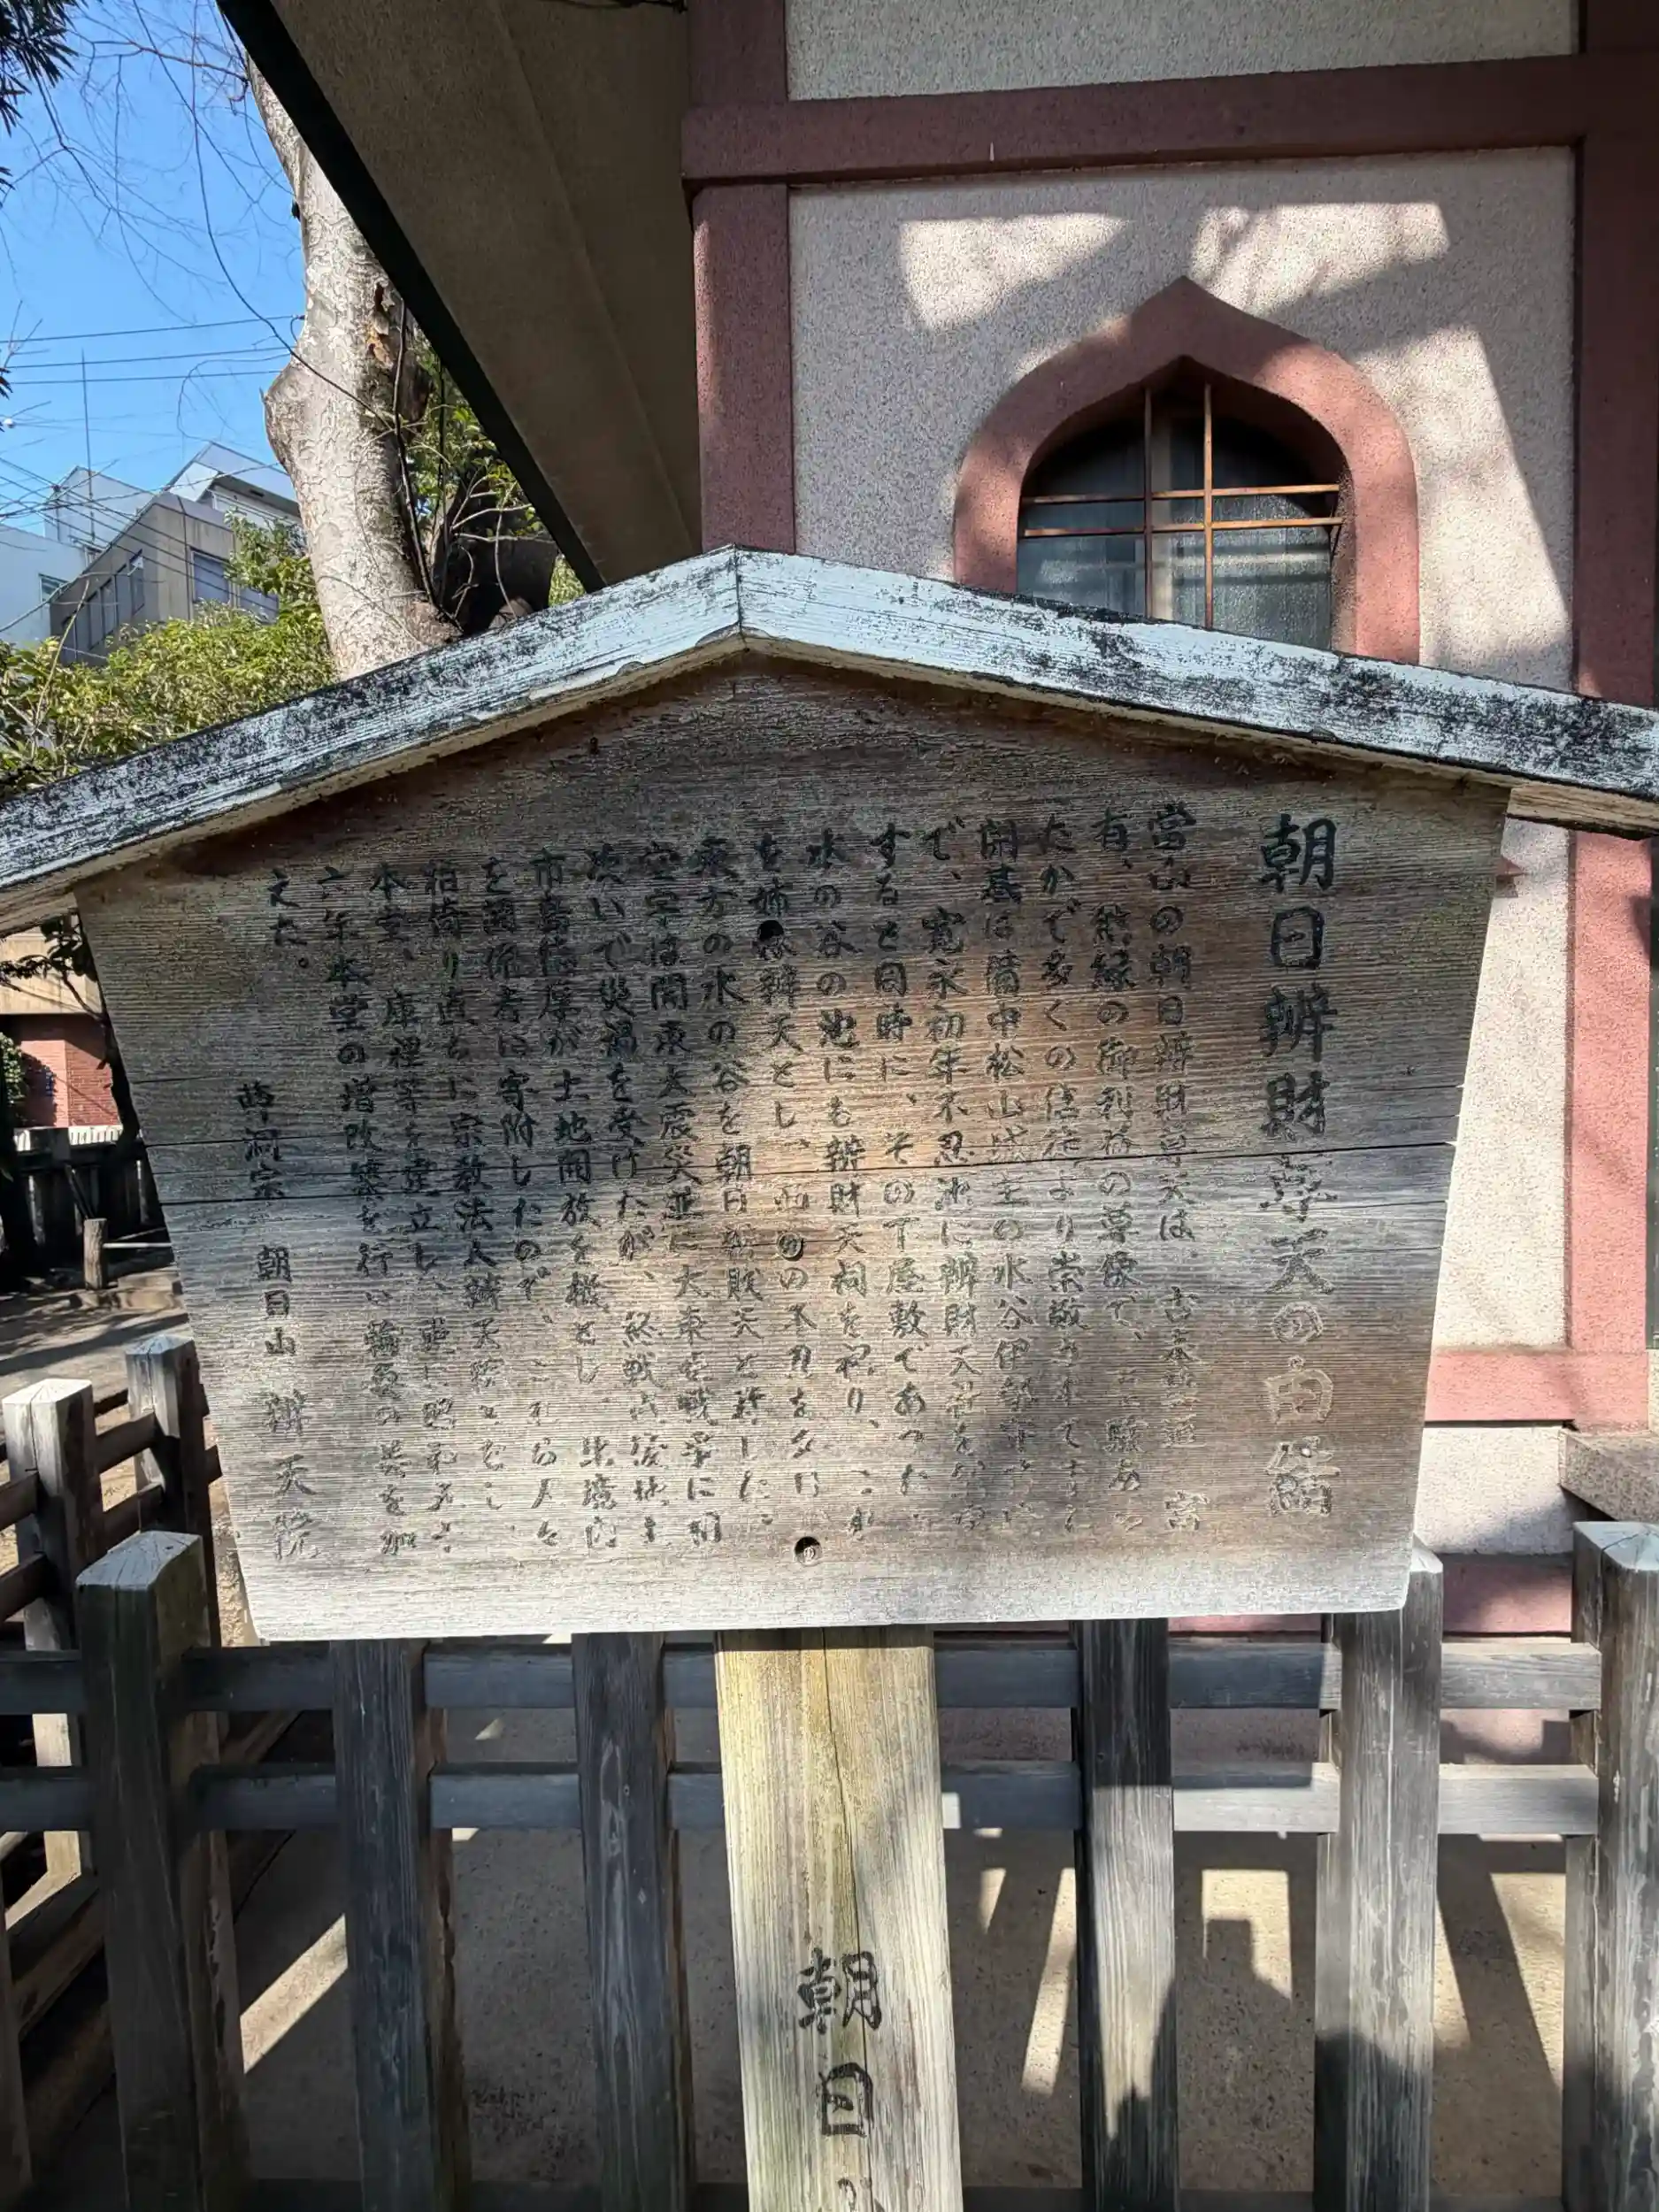 朝日辨財尊天の由緒
当山の朝日辨財尊天は、古来
有、熊縁の御利益の尊像で、
たかで多くの信徒より崇敬されて
開基は備中松山城主の水谷伊勢守
で、寛永初年不忍池に辨財天社を
すると同時に、その下屋敷であった
水の谷の池にも辨財天祠を祀り、
を姉 辨天とし、 の不忍を
東方の水の谷を朝日辨財天と称した。
堂宇は関東大震災並に大東亜戦争に相
次いで災禍を受けたが、終戦後
市島徳厚が土地開放を機とし、 境内
を関係者に寄附したので、これら人々
相倚り直ちに宗教法人辨天院をこし、
本堂、庫裡等を建立し、 昭和
六年本堂の増改築を行い輪奐の美を加
えた。
曹洞宗 朝日山 辨天院
朝日